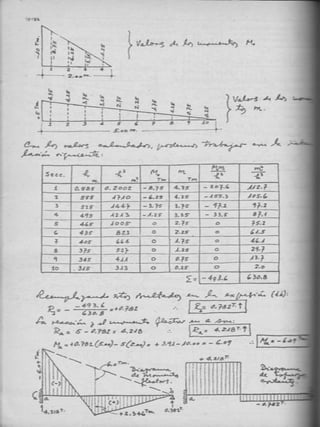 Valores de los momentos Mo
2.00 m
Valores de los
tos m.
5.00 m
Con los valores calculados, podemos trabajar en la
lación siguiente:
Secc. h m. h³ m. M Tm m Tm Mm/h³ m²/h³
1 0.585 0.2002 -8.75 4.75 -207.6 112.7
2 555 1710 -6.25 4.25 -155.3 105.6
3 525 1447 -3.75 3.75 -97.2 97.2
4 495 1213 -1.25 3.25 -33.5 87.1
5 465 1005 0 2.75 0 75.2
6 435 823 0 2.25 0 61.5
7 405 664 0 1.75 0 46.1
8 375 527 0 1.25 0 29.7
9 345 411 0 0.75 0 13.7
10 315 313 0 0.25 0 2.0
Σ= -493.6 630.8
Reemplazando estos resultados en la expresión
-493.6
630.8
= +0.782
∴ = 0.782 T ↑
La reacción y el momento flector en a son:
Ra = 5 - 0.782 = 4.218 ∴ Ra = 4.218 T ↑
Ma = +0.782(5.00) - 5(2.00) = +3.91 - 10.00 = -6.09 ∴ Ma = -6.09
Diagrama
de momentos
flectores.
(-)
(+)
4.218 T
+2.346 Tm
0.782 T
+4.218 T
Diagrama
de esfuerzo
cortante.
-0.782 T